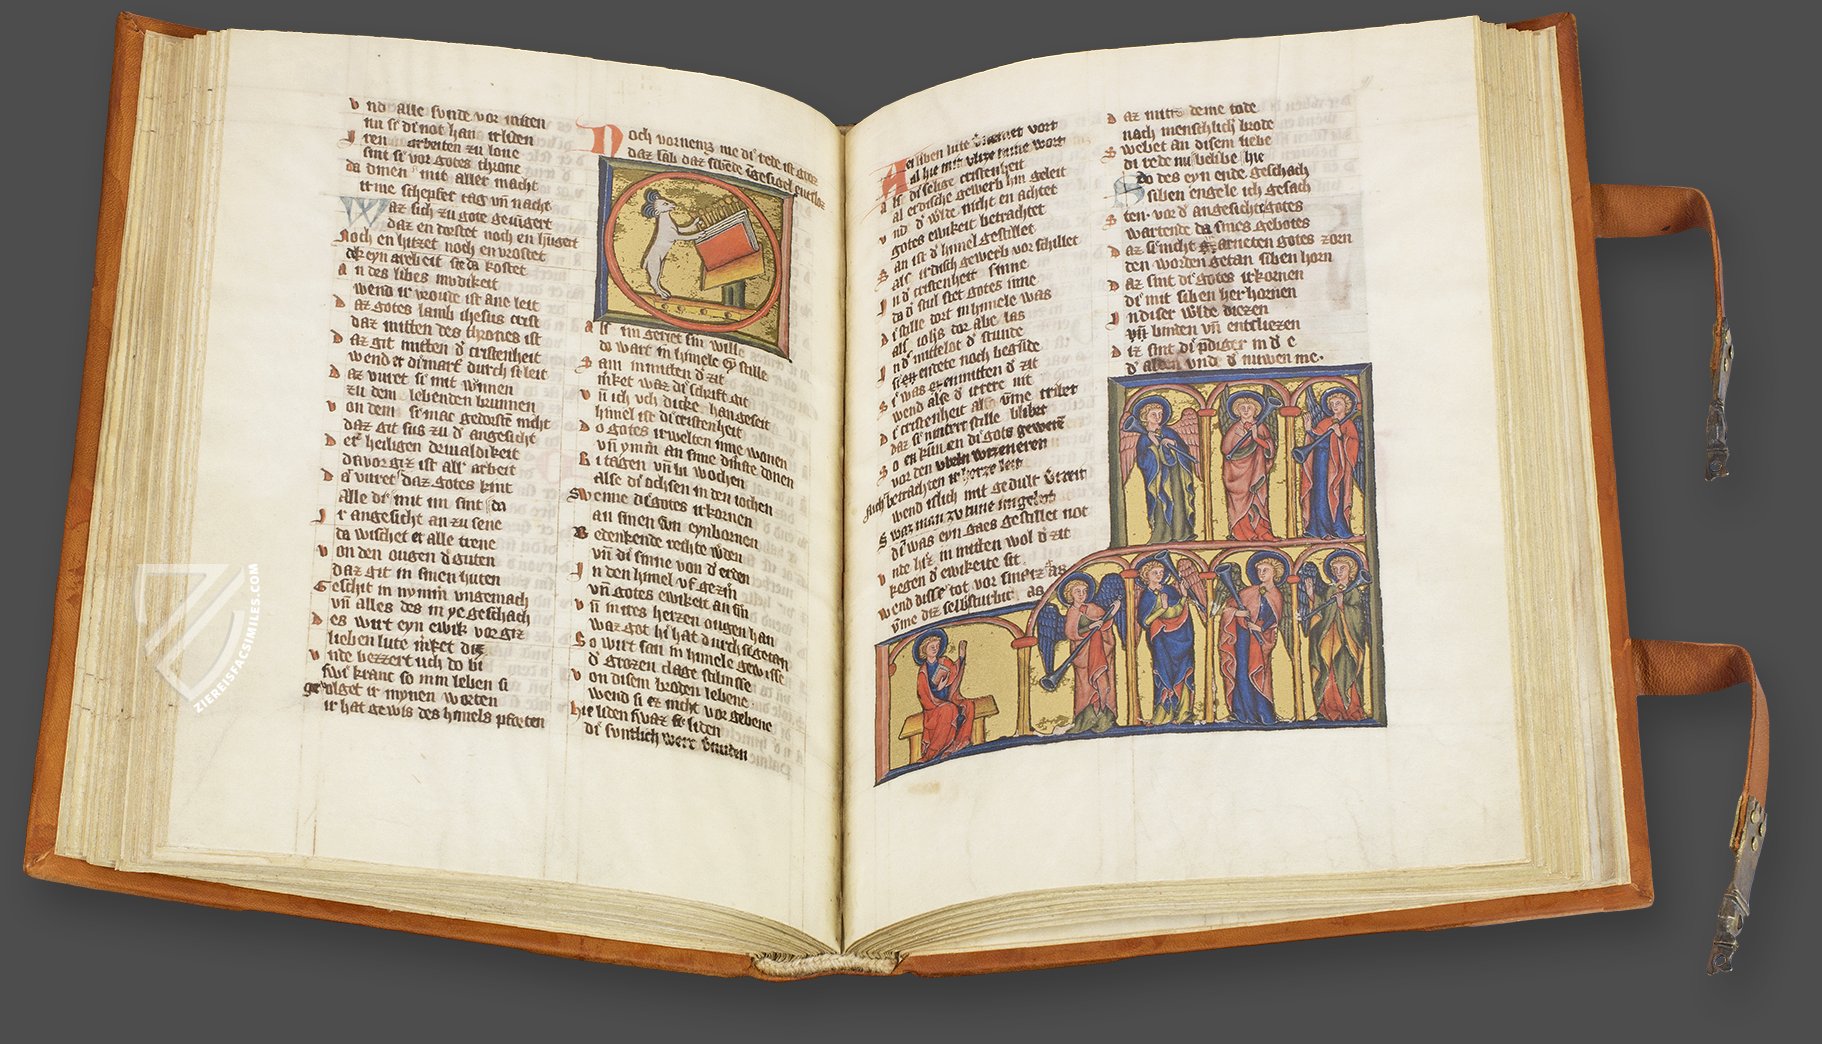 vnd alle sunde vor misten
nu si di not han irliden
Iren arbeiten zu lone
sint si vor gotes throne
da dinen mit aller macht
irme schepfer tag vn nacht
Waz sich zu gote gevugert
daz en dorstet noch en hugert
Noch en hitzet noch en vrostet
eyn arebeit sie da kostet
An des libes mudikeit
wend ir vroude ist ane leit
Daz gotes lamb ihesus crist
daz mitten des thrones ist
Daz git mitten d' cristenheit
wend er di durch si leit
Daz vuret si mit winnen
zu dem lebenden brunnen
von dem si mac gedorsten nicht
daz git sus zu d' angesicht
Der heiligen drivaldikeit
davor giz ist all' arbeit
Da vuret daz gotes kint
Alle di mit im sint da
Ir angesicht an zu sene
da wischet er alle trene
von den ougen d' guten
daz git in sinen huten
Geschit in nymm ungemach
vn alles des in ye geschach
Des wirt eyn ewik vor giz
lieben lute merket diz
vnde bezzert uch do bi
swi kranc so min leben si
volget ir mynen worten
ir hat gewis des himels pforten
Noch vornemz me di rede ist groz
daz sab daz sibende
Als im geriet sin wille
da wart in himele eyn stille
Sam in mitten d' zit
merket waz di schrift git
vn ich uch dicke han geseit
himel ist di cristenheit
Do gotes irwelten inne wonen
vn ymm an sime dinste donen
Bi tagen vn in wochen
Alse di ochsen in den iochen
Swenne di gotes irkornen
an sinen sun eynbornen
Bedenkende rechte werden
vn di sinne von d' erden
In den himel uf gezin
vn gotes ewikeit an sin
vn in ires herzen ougen han
waz got hi hat durch si getan
So wirt san in himele gewisse
d' grozen clage stilnisse
von disem broden lebene
wend si ez nicht vor gebene
Hie liden swaz sie liden
di suntlich were vermiden
ZIEREISFACSIMILES.COM
lieben lute vort
al hie mit vlize mine wort
Als di selige cristenheit
al erdische gewerb hin geleit
vnd d' werlde nicht en achtet
gotes ewikeit betrachtet
San ist d' himel gestillet
als irdisch gewerb vor schillet
In d' cristenheit sinne
da d' stul stet gotes inne
Di stille dort in himele was
als iohs dar abe las
In d' mittelot d' stunde
si en endete noch begunde
Si was in mitten d' zit
wend alse d' irrere nit
Di cristenheit als umme tribet
daz si nimmer stille blibet
So en kunnen di gots gewern
vor den ubeln
Auch betrachten ir herze leit
wend islich mit gedult
Swaz man zu tune im
di was eyn gaes gestillet not
vnde hiz in mitten wol d' zit
kegen d' ewikeite sit
wend disse tot vor sniitz
umme diz selbsturbit
Daz mitte deme tode
nach menschlich' brode
Swebet an disem liebe
di rede nu belibe hie
Do des eyn ende geschach
siben engele ich gesach
Sten vor d' angesichte gotes
wartende da sines gebotes
Daz si nicht arneten gotes zorn
den worden getan siben horn
Daz sint di gotes irkornen
di mit siben her hornen
In diser werlde diezen
vn binden vn entsliezen
Diz sint di prediger in d' e
d' alden unde d' nuwen me